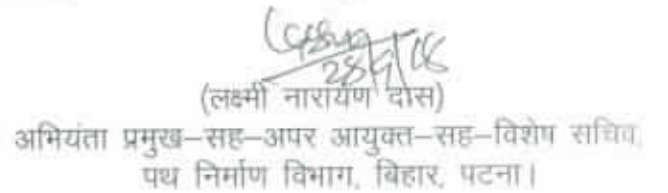 28/9/06
(लक्ष्मी नारायण दास)
अभियंता प्रमुख–सह–अपर आयुक्त–सह–विशेष सचिव,
पथ निर्माण विभाग, बिहार, पटना।